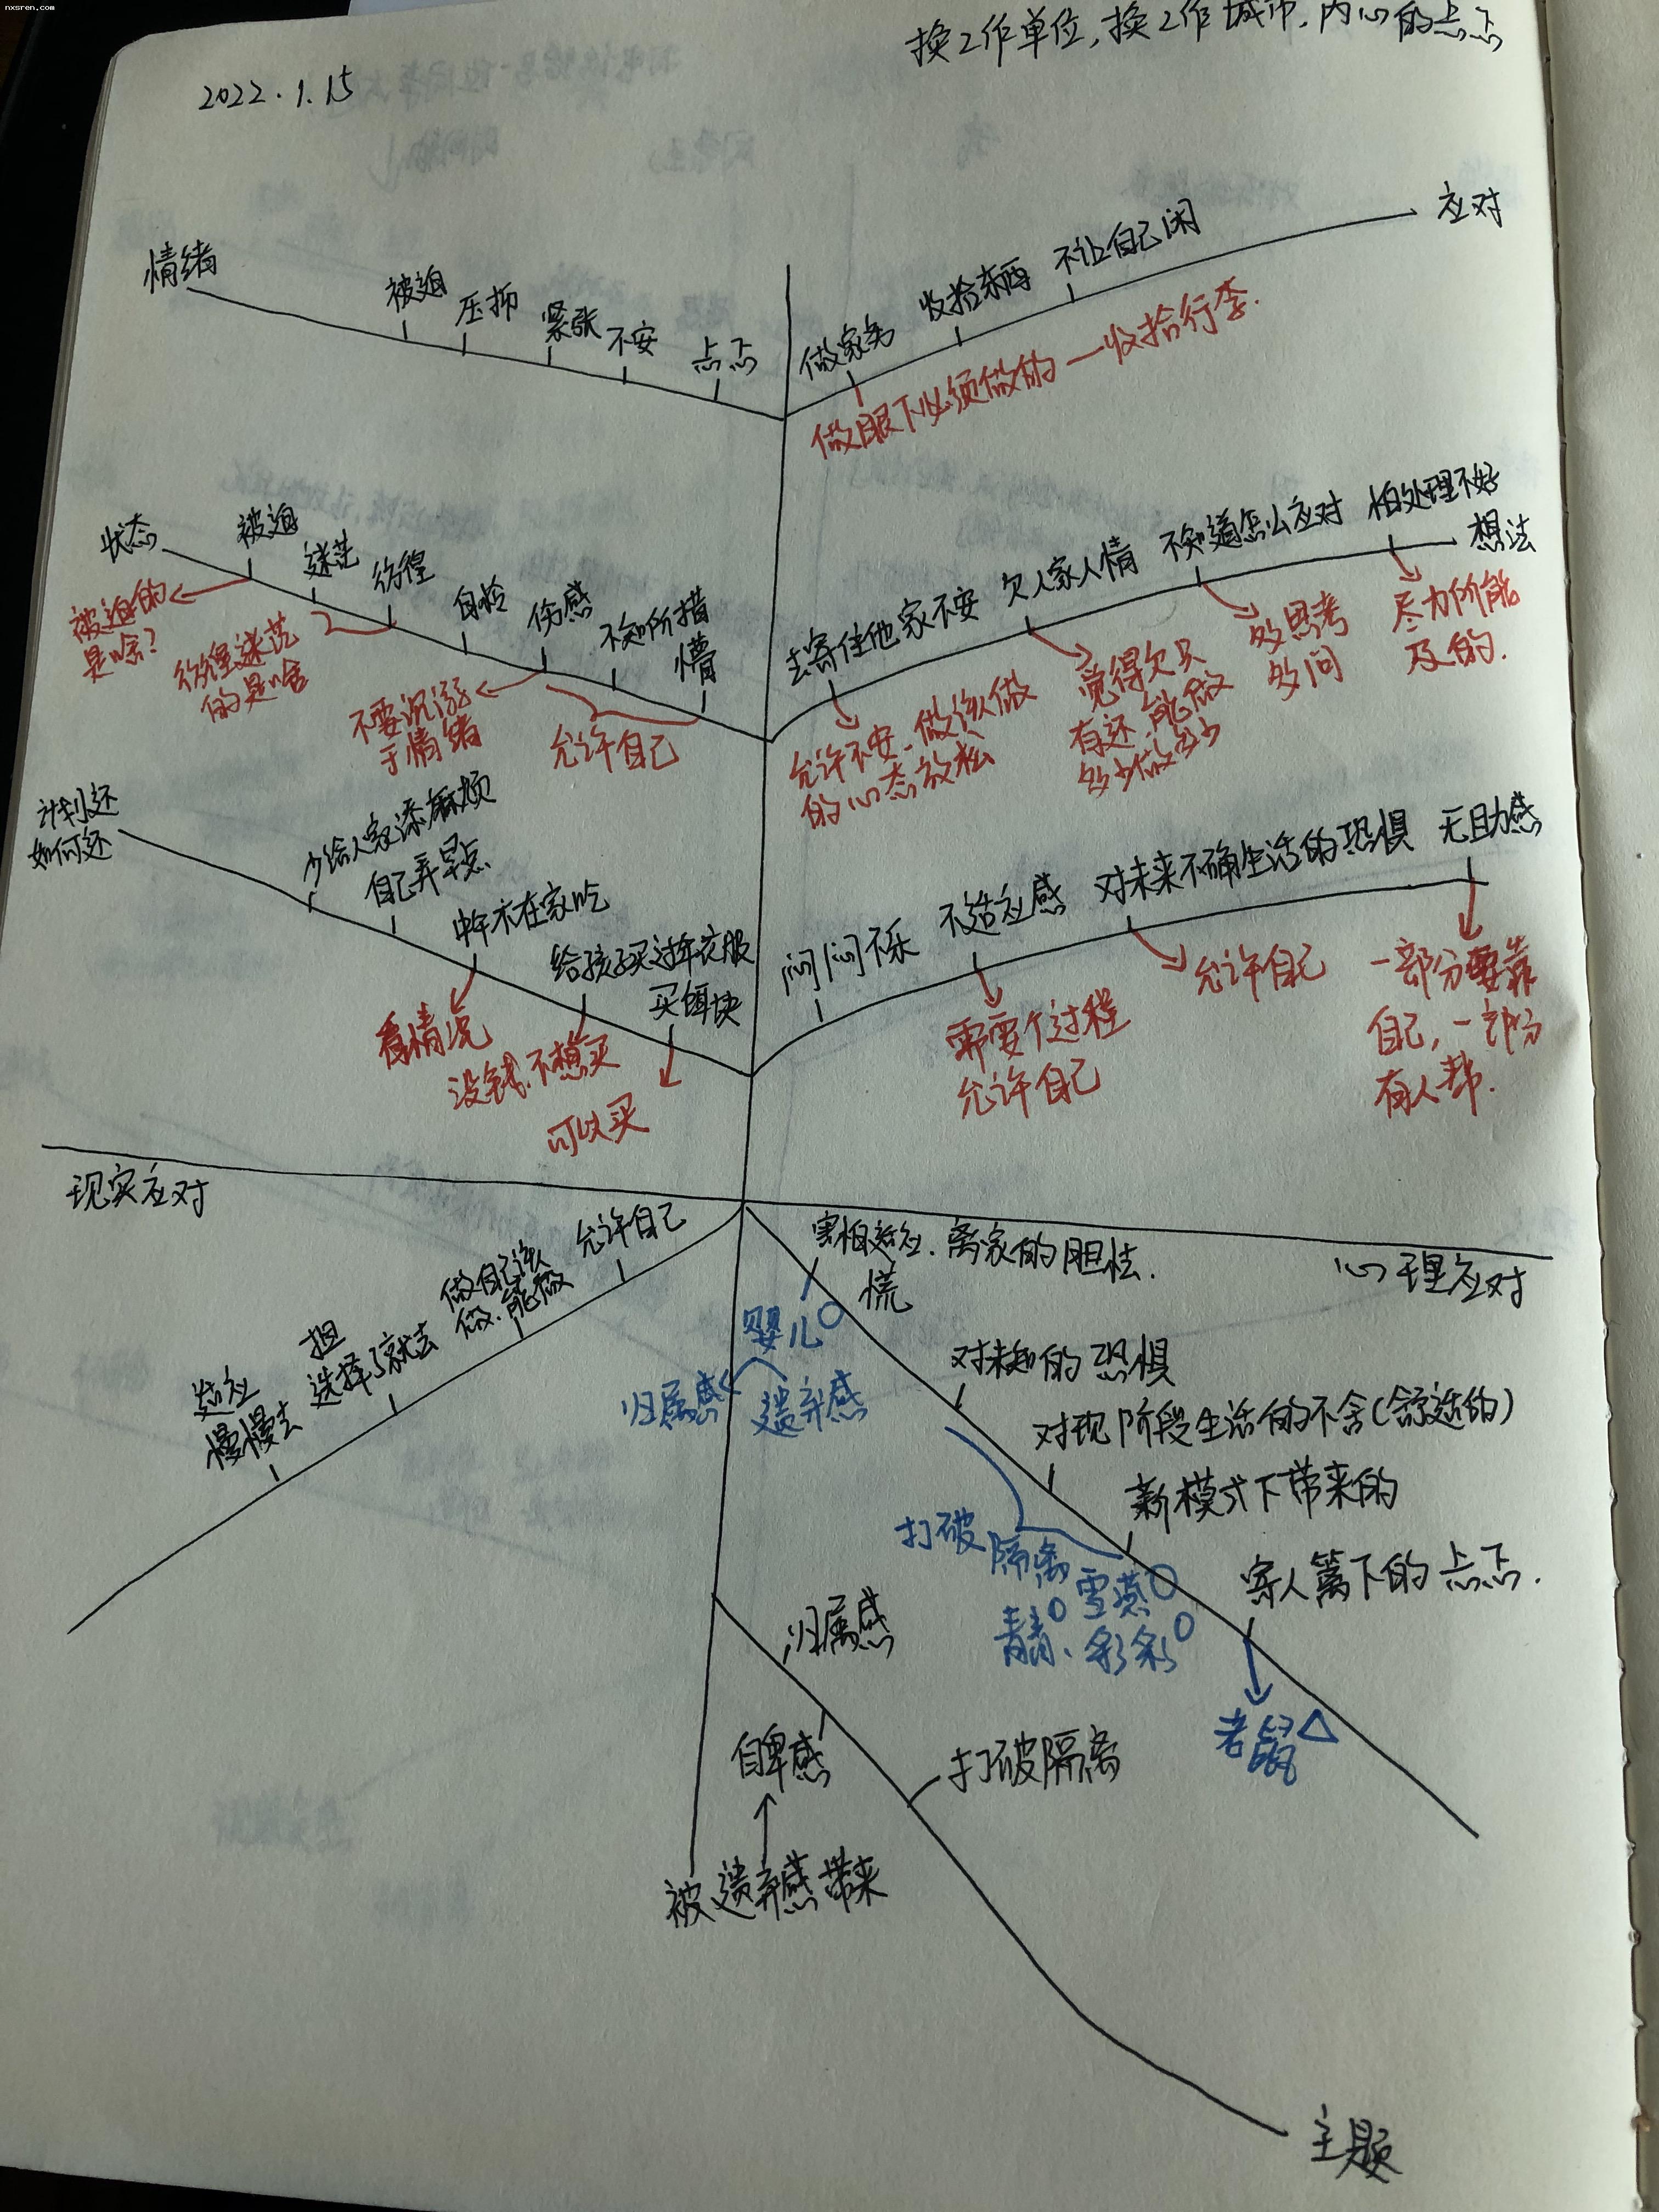 nxsren.com
换工作单位,换工作城市.内心的忐忑
2022.1.15
情绪
被迫
压抑
紧张
不安
忐忑
做家务
收拾东西
不让自己闲
应对
做眼下必须做的一收拾行李.
状态
被迫
迷茫
彷徨
自怜
伤感
不知所措
懵
被迫的
是啥?
彷徨迷茫
的是啥
不要沉溺
于情绪
允许自己
去寄住他家不安
欠人家人情
不知道怎么应对
怕处理不好
想法
允许不安.做该做
的心态放松
觉得欠只
有还.能做
多少做多少
多思考
多问
尽力所能
及的.
计划还
如何还
少给人家添麻烦
自己弄早点
中午不在家吃
给孩子买过年衣服
买饵块
看情况
没钱.不想买
可以买
闷闷不乐
不适应感
对未来不确生活的恐惧
无助感
需要个过程
允许自己
允许自己
一部分要靠
自己,一部分
有人帮.
现实应对
心理应对
允许自己
做自己该
做.能做
担
选择了就去
适应
慢慢去
害怕适应.离家的胆怯.
慌
婴儿
归属感
遗弃感
对未知的恐惧
对现阶段生活的不舍(舒适的)
新模式下带来的
寄人篱下的忐忑.
打破
隔离
雪燕
青青、彩彩
老鼠
归属感
自卑感
打破隔离
被遗弃感带来
主题